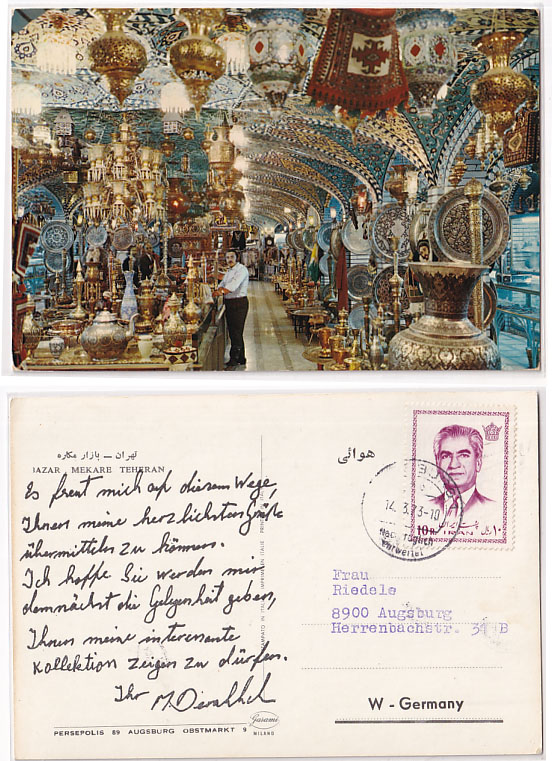 تهران — بازار مکاره
BAZAR MEKARE TEHERAN
Es freut mich auf diesem Wege,
Ihnen meine herzlichsten Grüße
übermitteln zu können.
Ich hoffe Sie werden mir
demnächst die Gelegenheit geben,
Ihnen meine interessante
Kollektion zeigen zu dürfen.
Ihr
PERSEPOLIS 89 AUGSBURG OBSTMARKT 9
Garami
MILANO
STAMPATO IN ITALIE
هوائی
14.3.73-10
10 R. IRAN ۱۰ ریال
Frau
Riedele
8900 Augsburg
Herrenbachstr. 31 B
W - Germany